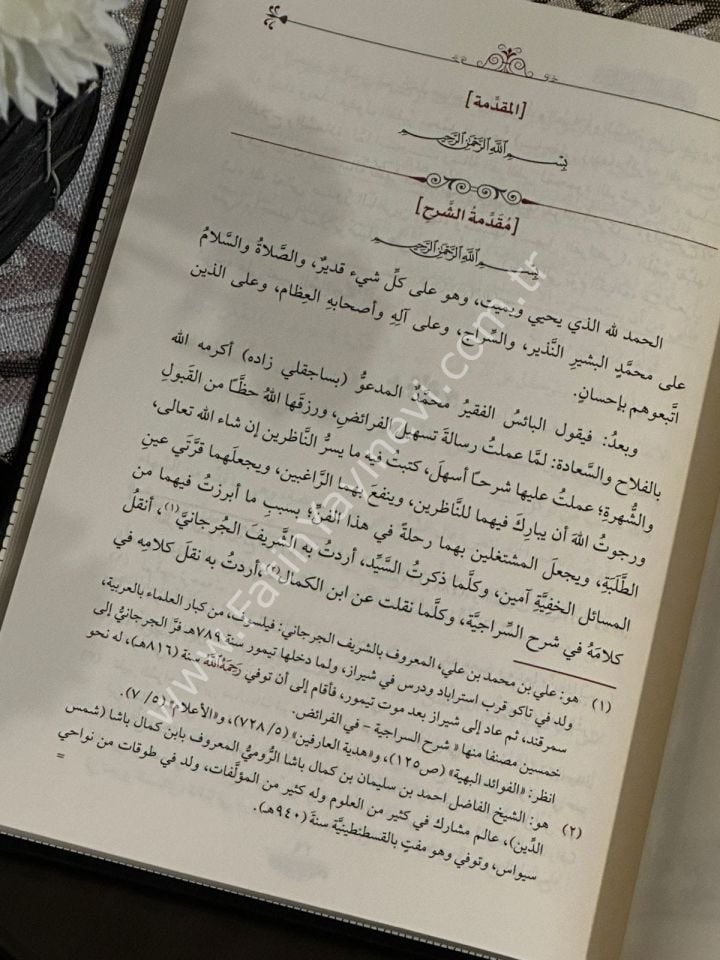 [المقدَّمة]
بِسْمِ ٱللَّهِ ٱلرَّحْمَٰنِ ٱلرَّحِيمِ
[مُقدَّمةُ الشَّرح]
بِسْمِ ٱللَّهِ ٱلرَّحْمَٰنِ ٱلرَّحِيمِ
الحمد لله الذي يحيي ويميت، وهو على كلِّ شيء قديرٌ، والصَّلاةُ والسَّلامُ
على محمَّدٍ البشيرِ النَّذير، والسِّراجِ، وعلى آلِهِ وأصحابهِ العِظام، وعلى الذين
اتَّبعوهم بإحسانٍ.
وبعدُ: فيقول البائسُ الفقيرُ محمَّدٌ المدعوُّ (بساجقلي زاده) أكرمه الله
بالفلاح والسَّعادة: لمَّا عملتُ رسالةَ تسهيل الفرائض، ورزقَها اللهُ حظًّا من القَبولِ
والشُّهرةِ؛ عملتُ عليها شرحًا أسهلَ، كتبتُ فيه ما يسرُّ النَّاظرين إن شاء الله تعالى،
ورجوتُ اللهَ أن يباركَ فيهما للنَّاظرين، وينفعَ بهما الرَّاغبين، ويجعلَهما قرَّتَي عينِ
الطَّلَبةِ، ويجعلَ المشتغلين بهما رحلةً في هذا الفنِّ؛ بسببِ ما أبرزتُ فيهما من
المسائل الخفِيَّةِ آمين، وكلَّما ذكرتُ السَّيِّد، أردتُ به الشَّريفَ الجُرجانيَّ(١)، أنقلُ
كلامَهُ في شرح السِّراجيَّة، وكلَّما نقلت عن ابن الكمال(٢)، أردتُ به نقلَ كلامِه في
(١) هو: علي بن محمد بن علي، المعروف بالشريف الجرجاني: فيلسوف، من كبار العلماء بالعربية،
ولد في تاكو قرب استراباد ودرس في شيراز، ولما دخلها تيمور سنة ٧٨٩هـ فرَّ الجرجانيُّ إلى
سمرقند، ثم عاد إلى شيراز بعد موت تيمور، فأقام إلى أن توفي رَحِمَهُ ٱللَّهُ سنة (٨١٦هـ)، له نحو
خمسين مصنفا منها «شرح السراجية - في الفرائض.
انظر: «الفوائد البهية» (ص١٢٥)، و«هدية العارفين» (٥/ ٧٢٨)، و«الأعلام» (٥/ ٧).
(٢) هو: الشيخ الفاضل احمد بن سليمان بن كمال باشا الرُّوميُّ المعروف بابن كمال باشا (شمس
الدِّين)، عالم مشارك في كثير من العلوم وله كثير من المؤلَّفات، ولد في طوقات من نواحي
سيواس، وتوفي وهو مفتٍ بالقسطنطينيَّة سنةَ (٩٤٠هـ).
=
www.FatihYayinevi.com.tr